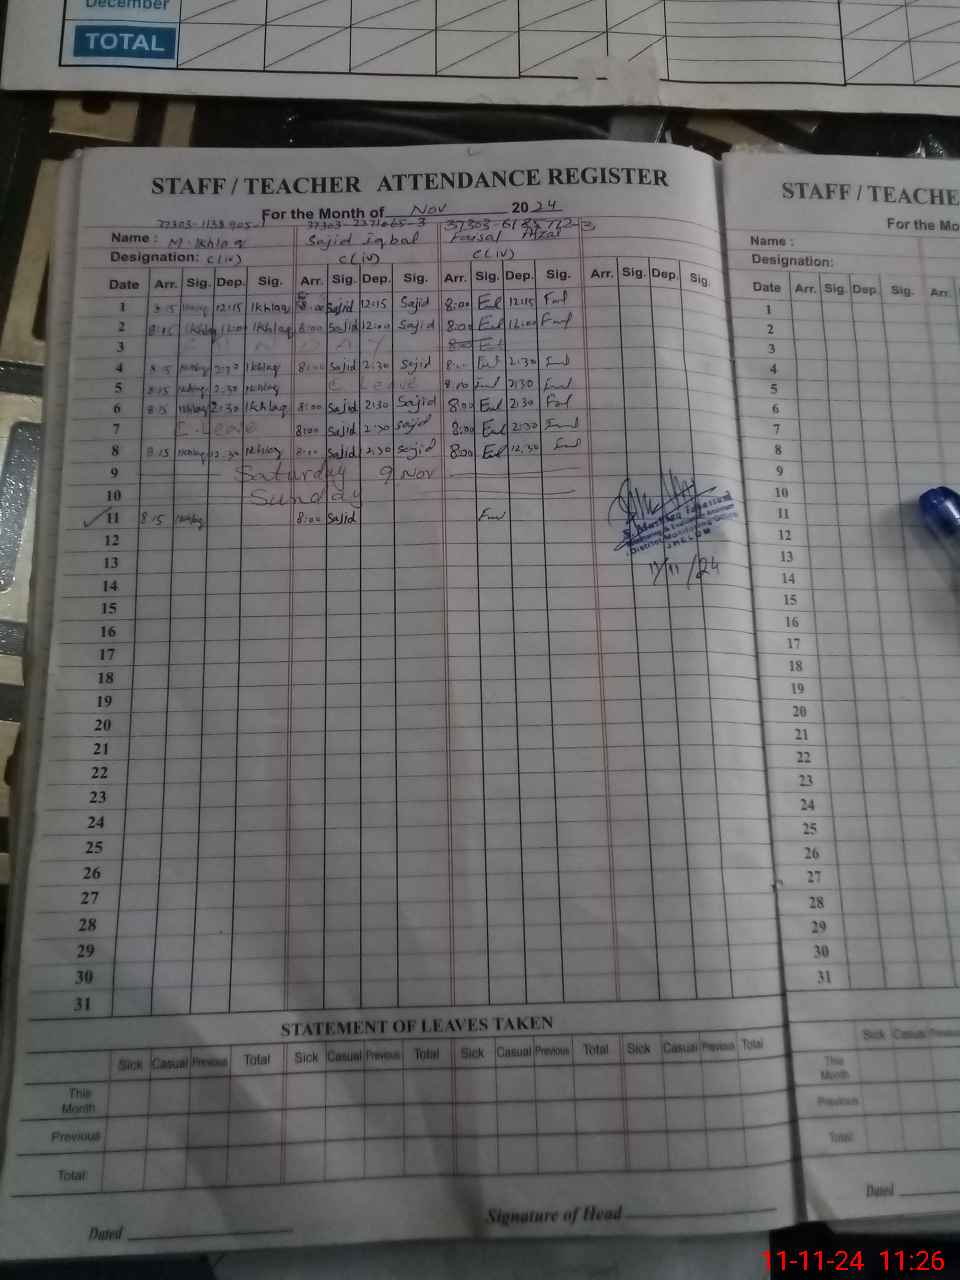 December
TOTAL
STAFF / TEACHER ATTENDANCE REGISTER
For the Month of Nov 2024
Name : M. Ikhlaq Sajid iqbal Faisal Afzal
Designation: C(iv) C(iv) C(iv)
Date Arr. Sig. Dep. Sig. Arr. Sig. Dep. Sig. Arr. Sig. Dep. Sig. Arr. Sig. Dep. Sig.
1 8:15 12:15 Ikhlaq 8:00 Sajid 12:15 Sajid 8:00 12:15
2 8:15 Ikhlaq 12:00 Ikhlaq 8:00 Sajid 12:00 Sajid 8:00 12:00
3 8:00
4 8:15 Ikhlaq 2:30 Ikhlaq 8:00 Sajid 2:30 Sajid 8:00 2:30
5 8:15 Ikhlaq 2:30 Ikhlaq C. Leave 8:00 2:30
6 8:15 Ikhlaq 2:30 Ikhlaq 8:00 Sajid 2:30 Sajid 8:00 2:30
7 C. Leave 8:00 Sajid 2:30 Sajid 8:00 2:30
8 8:15 Ikhlaq 12:30 Ikhlaq 8:00 Sajid 12:30 Sajid 8:00 12:30
9 Saturday 9 Nov
10 Sunday
11 8:15 Ikhlaq 8:00 Sajid
District Monitoring Officer
JHELUM
11/11/24
12
13
14
15
16
17
18
19
20
21
22
23
24
25
26
27
28
29
30
31
STATEMENT OF LEAVES TAKEN
Sick Casual Previous Total Sick Casual Previous Total Sick Casual Previous Total Sick Casual Previous Total
This Month
Previous
Total:
Dated
Signature of Head
STAFF / TEACHE
For the Mo
Name :
Designation:
Date Arr. Sig. Dep. Sig. Arr.
1
2
3
4
5
6
7
8
9
10
11
12
13
14
15
16
17
18
19
20
21
22
23
24
25
26
27
28
29
30
31
Sick Casual Previous
This Month
Previous
Total:
Dated
11-11-24 11:26